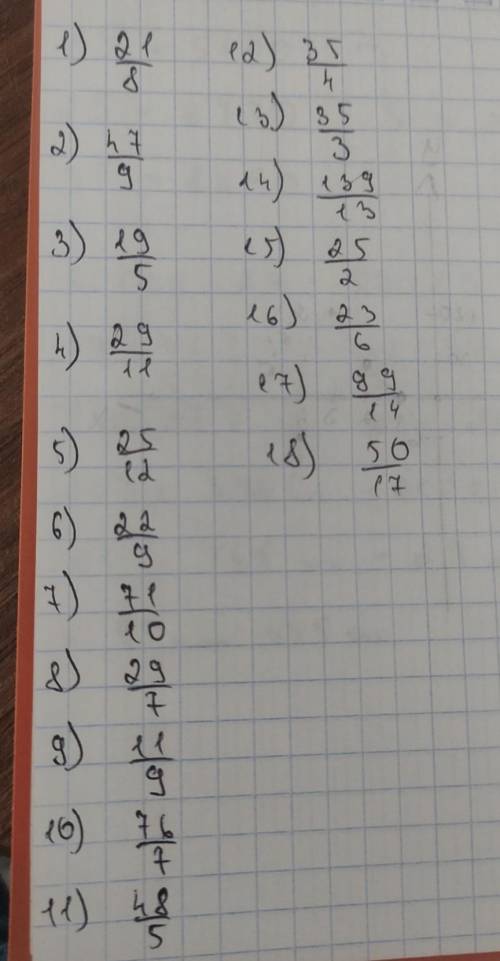 1) 21/8
2) 47/9
3) 19/5
4) 29/11
5) 25/12
6) 22/9
7) 71/10
8) 29/7
9) 11/9
10) 76/7
11) 48/5
12) 35/4
13) 35/3
14) 139/13
15) 25/2
16) 23/6
17) 89/14
18) 50/17